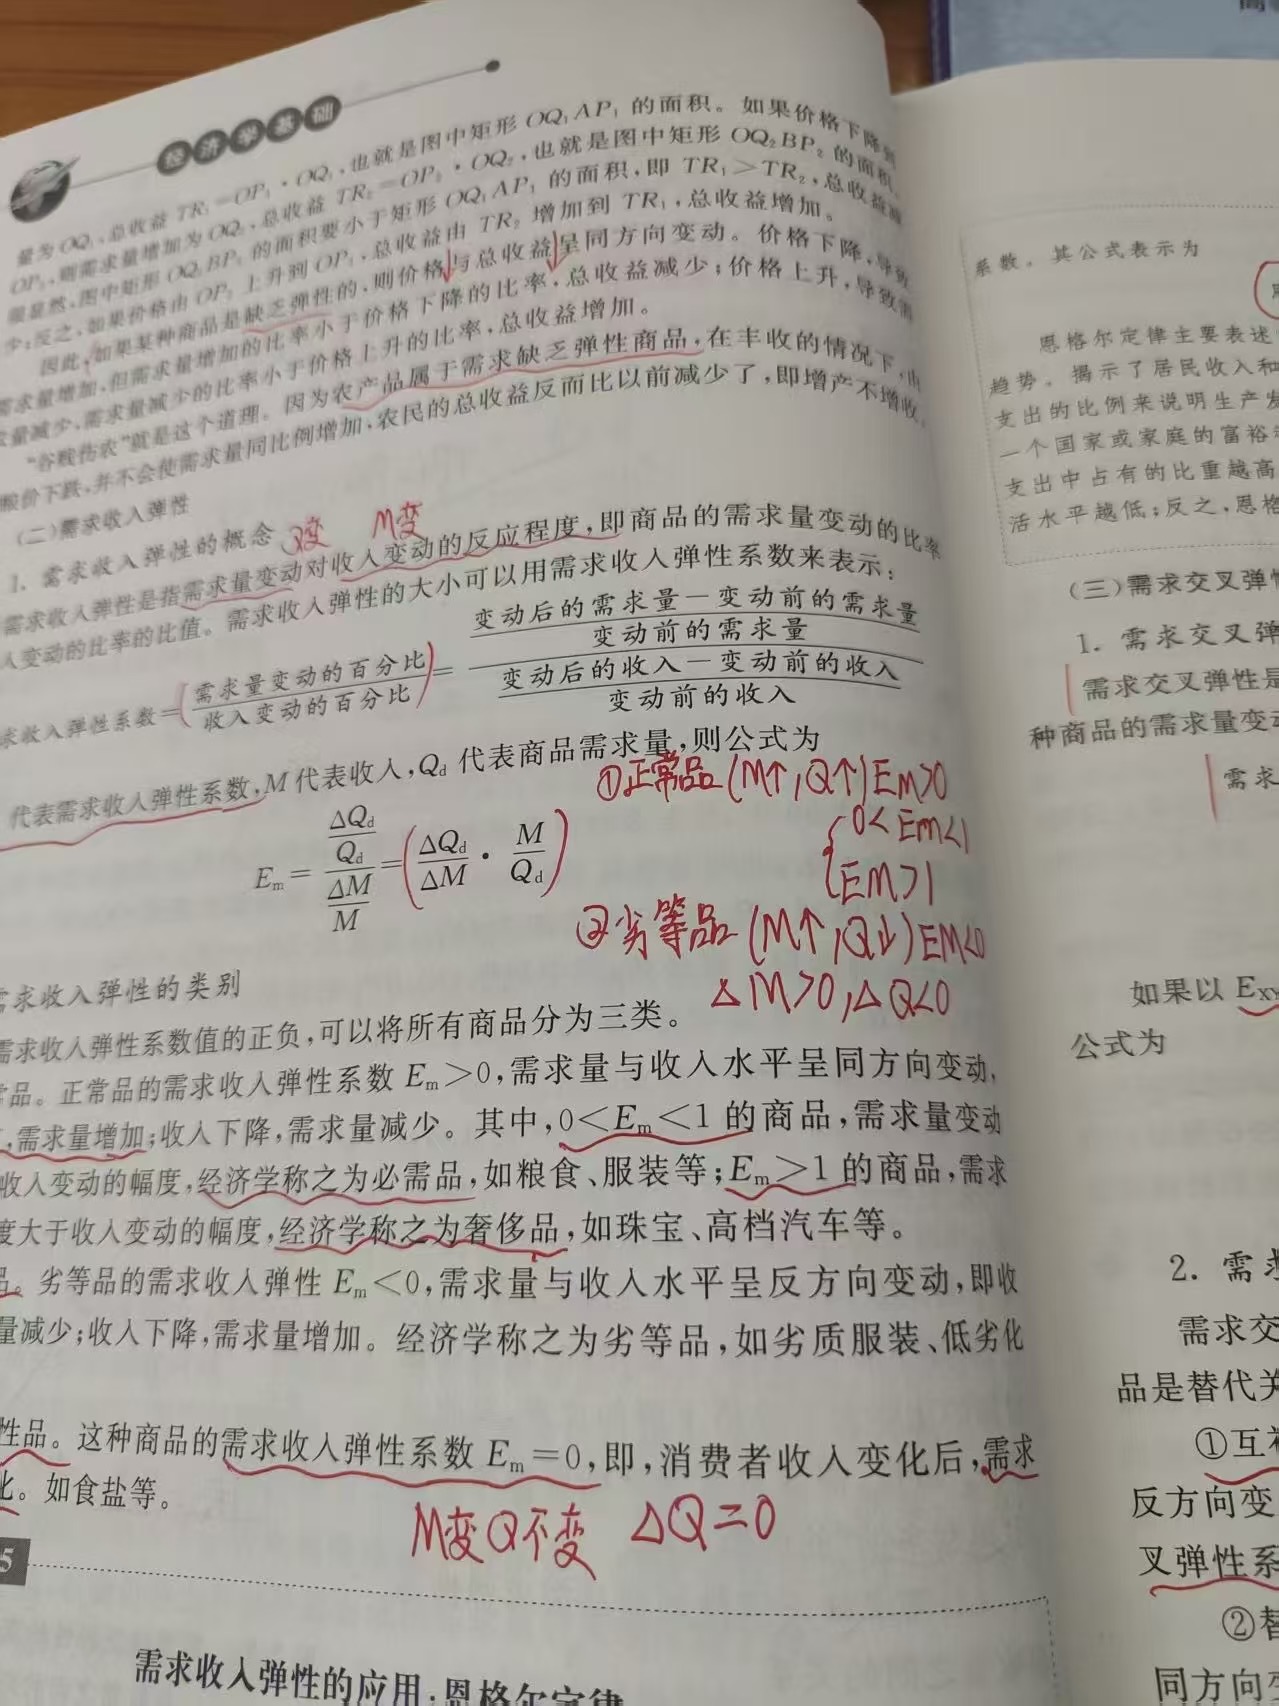 经济学基础
量为OQ₁,总收益 TR₁=OP₁·OQ₁,也就是图中矩形 OQ₁AP₁ 的面积。如果价格下降到
OP₂,则需求量增加为OQ₂,总收益 TR₂=OP₂·OQ₂,也就是图中矩形 OQ₂BP₂ 的面积。
很显然,图中矩形 OQ₂BP₂ 的面积要小于矩形 OQ₁AP₁ 的面积,即 TR₁>TR₂,总收益减
少;反之,如果价格由 OP₂ 上升到 OP₁,总收益由 TR₂ 增加到 TR₁,总收益增加。
因此,如果某种商品是缺乏弹性的,则价格与总收益呈同方向变动。价格下降,导致
需求量增加,但需求量增加的比率小于价格下降的比率,总收益减少;价格上升,导致需
求量减少,需求量减少的比率小于价格上升的比率,总收益增加。
“谷贱伤农”就是这个道理。因为农产品属于需求缺乏弹性商品,在丰收的情况下,由
粮价下跌,并不会使需求量同比例增加,农民的总收益反而比以前减少了,即增产不增收。
(二)需求收入弹性
1. 需求收入弹性的概念
Q变 M变
需求收入弹性是指需求量变动对收入变动的反应程度,即商品的需求量变动的比率
入变动的比率的比值。需求收入弹性的大小可以用需求收入弹性系数来表示:
求收入弹性系数=(需求量变动的百分比/收入变动的百分比)=
变动后的需求量-变动前的需求量
变动前的需求量
变动后的收入-变动前的收入
变动前的收入
代表需求收入弹性系数,M 代表收入,Qd 代表商品需求量,则公式为
①正常品(M↑,Q↑)Em>0
{0<Em<1
Em>1
Em=(ΔQd/Qd)/(ΔM/M)=(ΔQd/ΔM·M/Qd)
②劣等品(M↑,Q↓)EM<0
ΔM>0,ΔQ<0
需求收入弹性的类别
需求收入弹性系数值的正负,可以将所有商品分为三类。
常品。正常品的需求收入弹性系数 Em>0,需求量与收入水平呈同方向变动,
,需求量增加;收入下降,需求量减少。其中,0<Em<1 的商品,需求量变动
收入变动的幅度,经济学称之为必需品,如粮食、服装等;Em>1 的商品,需求
度大于收入变动的幅度,经济学称之为奢侈品,如珠宝、高档汽车等。
品。劣等品的需求收入弹性 Em<0,需求量与收入水平呈反方向变动,即收
量减少;收入下降,需求量增加。经济学称之为劣等品,如劣质服装、低劣化
性品。这种商品的需求收入弹性系数 Em=0,即,消费者收入变化后,需求
化。如食盐等。
M变Q不变 ΔQ=0
5
需求收入弹性的应用:恩格尔定律
系数。其公式表示为
恩格尔定律主要表述
趋势。揭示了居民收入和
支出的比例来说明生产发
一个国家或家庭的富裕
支出中占有的比重越高
活水平越低;反之,恩格
(三)需求交叉弹性
1. 需求交叉弹
需求交叉弹性是
种商品的需求量变动
需求
如果以 EXY
公式为
2. 需求
需求交
品是替代关
①互补
反方向变
叉弹性系
②替
同方向变